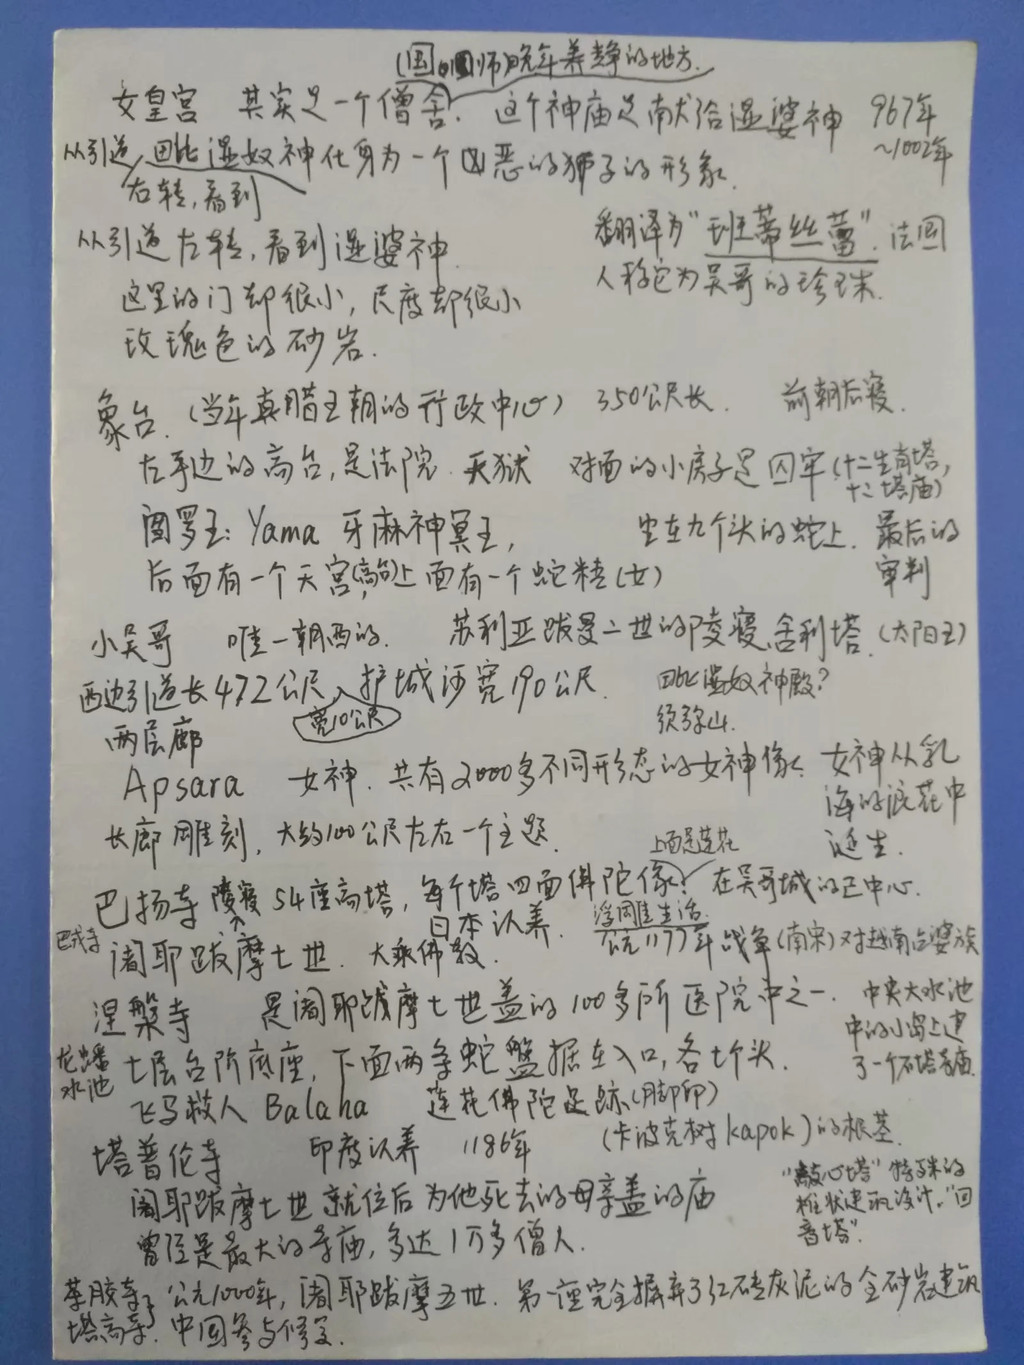 (国 师)晚年养静的地方.
女皇宫 其实是一个僧舍. 这个神庙是献给湿婆神 967年
~1002年
从引道 因比湿奴神化身为一个凶恶的狮子的形象.
右转,看到
从引道左转,看到湿婆神 翻译为"班蒂丝蕾".法国
这里的门却很小,尺度却很小 人称它为吴哥的珍珠.
玫瑰色的砂岩.
象台.(当年真腊王朝的行政中心) 350公尺长. 前朝后寝.
左手边的高台,是法院.天狱 对面的小房子是囚牢(十二生肖塔,
十二塔庙)
阎罗王: Yama 牙麻神冥王, 坐在九个头的蛇上. 最后的
审判
后面有一个天宫(高台)上面有一个蛇精(女)
小吴哥 唯一朝西的. 苏利亚跋曼二世的陵寝.舍利塔.(太阳王)
西边引道长472公尺,护城河宽190公尺. 因比湿奴神殿?
宽10公尺 须弥山.
两层廊
Apsara 女神.共有2000多不同形态的女神像. 女神从乳
海的浪花中
诞生.
长廊雕刻,大约100公尺左右一个主题.
上面是莲花
巴扬寺 陵寝 54座高塔,每个塔四面佛陀像? 在吴哥城的正中心.
日本认养. 浮雕生活.
巴戎寺 阇耶跋摩七世.大乘佛教. 公元1177年战争(南宋)对越南占婆族
涅槃寺 是阇耶跋摩七世盖的100多所医院中之一. 中央大水池
中的小岛上建
了一个石塔寺庙.
龙蟠水池 七层台阶底座,下面两条蛇盤据在入口,各七个头.
飞马救人 Balaha 莲花佛陀足跡(脚印)
塔普伦寺 印度认养 1186年 (卡波克树kapok)的根基.
阇耶跋摩七世就位后为他死去的母亲盖的庙
曾经是最大的寺庙,多达1万多僧人.
"敲心塔"特殊的
椎状建筑设计."回
音塔".
茶胶寺, 公元1000年,阇耶跋摩五世.第一座完全摒弃了红砖灰泥的全砂岩建筑
塔高寺. 中国参与修复.